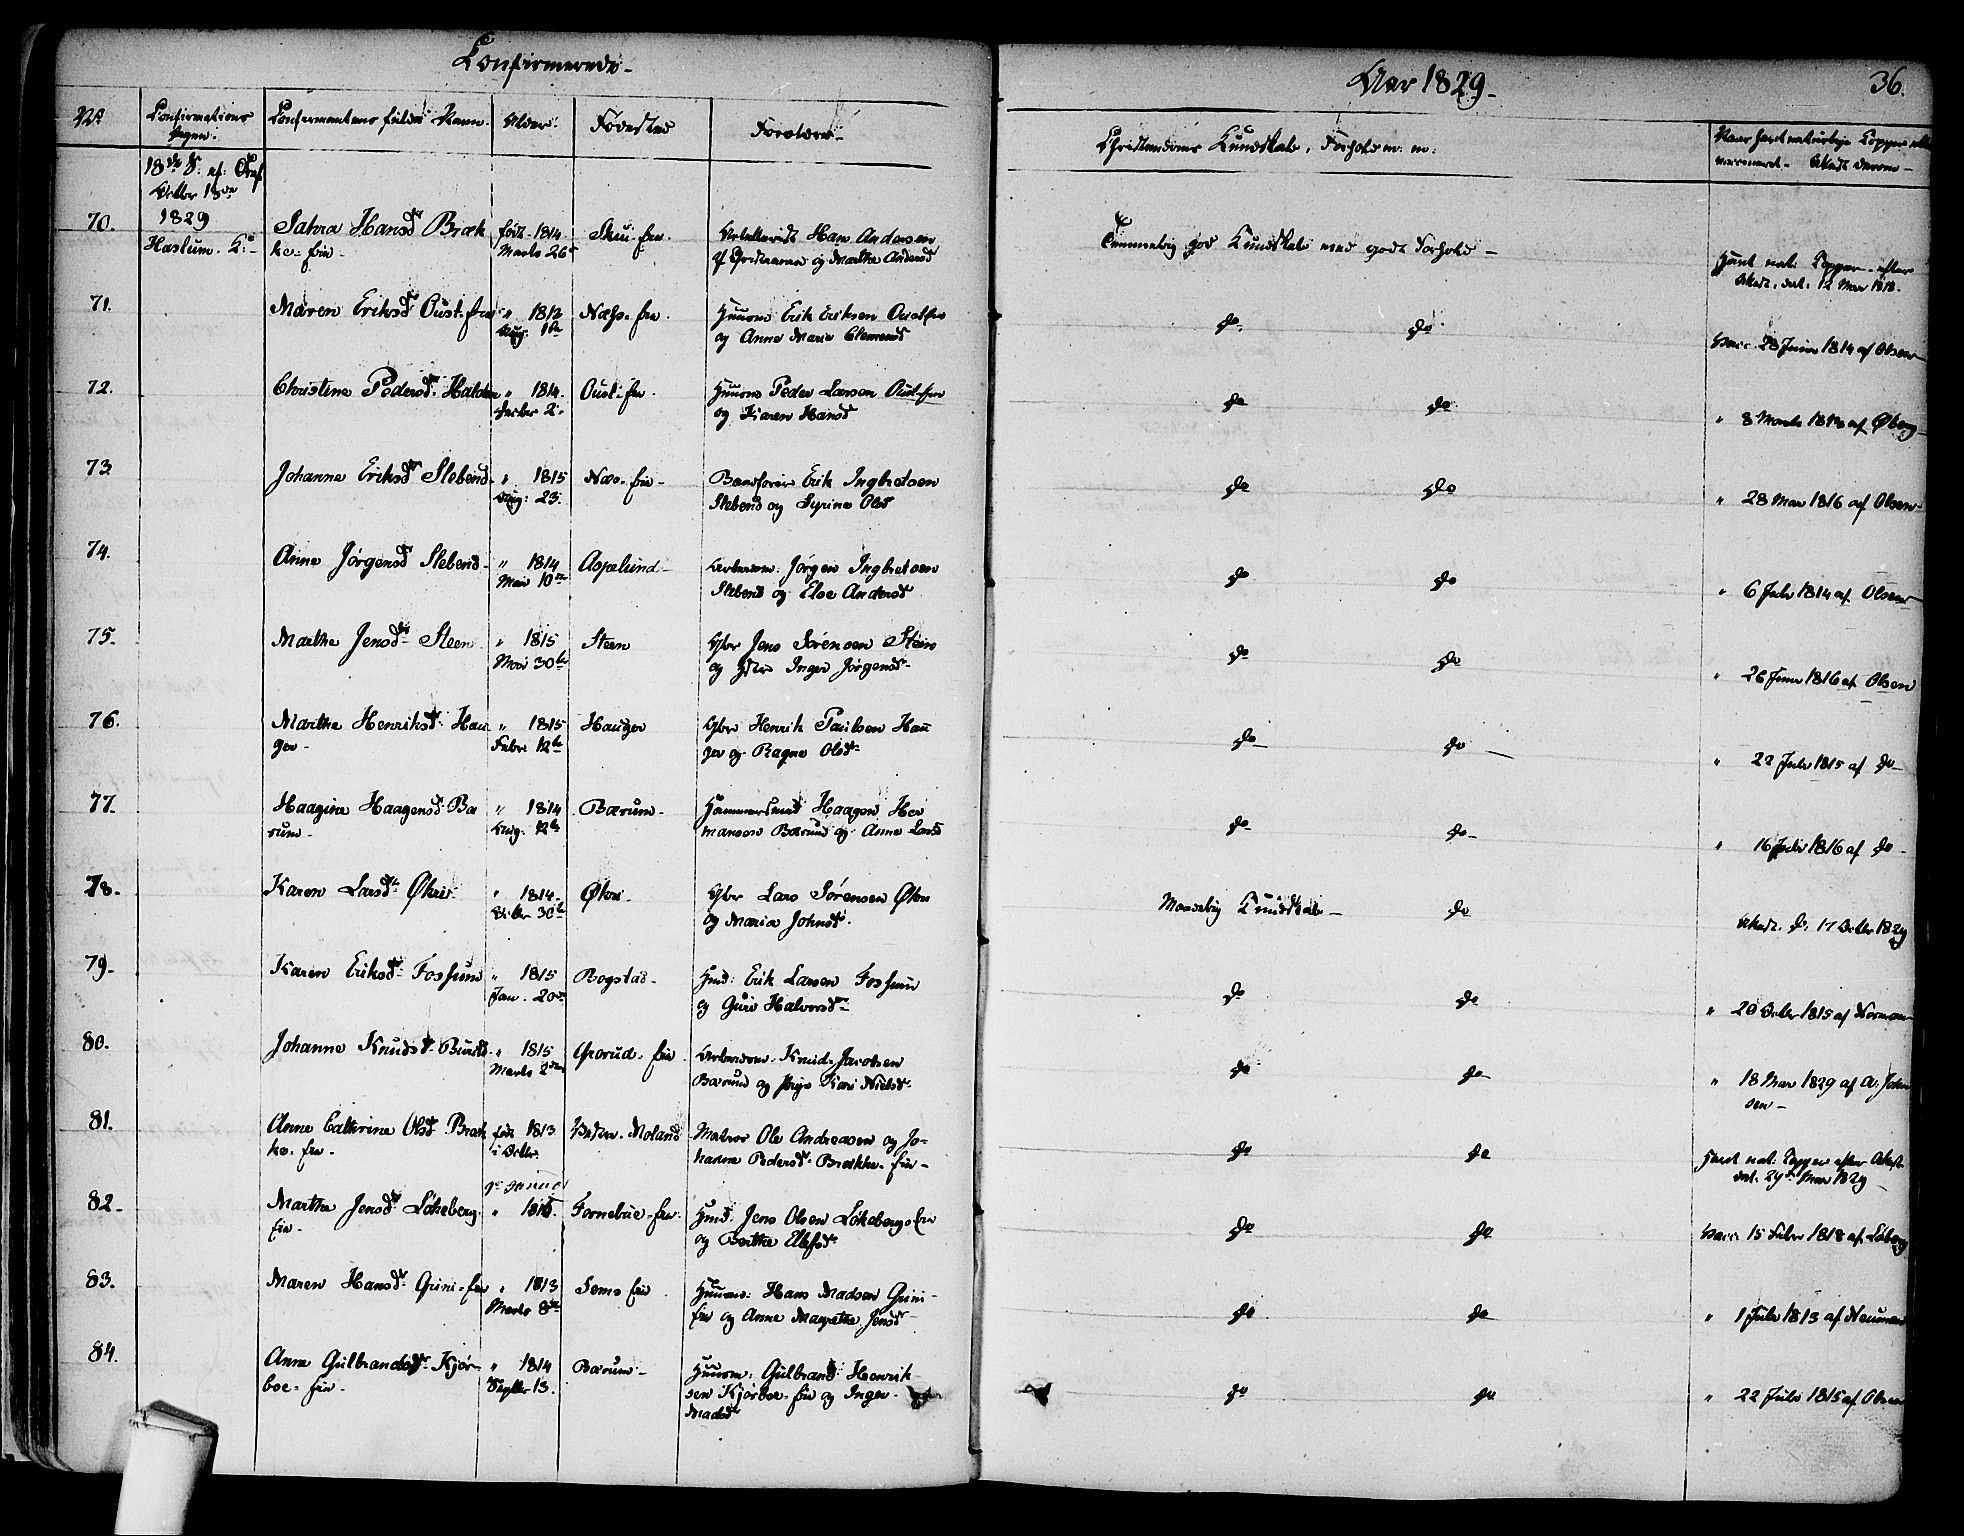 Confirmerede
Aar 1829
36.
No
Confirmations Dagen.
Confirmantens fulde Navn.
Alder.
Fødested
Forældre
Christendoms Kundskab, Forhold m: m:
Naar havt naturlige Kopper eller
vaccineret. Attest derom
18de S. ef:
October 18de
1829
Haslum. K:e
70.
Sahra Hansd Bræk
ke-eie
født 1814
Marts 26
Skui-eie.
Hans Andersen
og Marthe Andersd
Temmelig god Kundskab med godt Forhold
Havt nat: Kopper efter
Attest. dat. 12 Mai 1818.
71.
Maren Eriksdr Oust-eie
" 1812
Aug. 1ste
Næss-eie.
Huusm Erik Eriksen Oust-eie
og Anne Marie Clemensd
do. do
vacc. 28 Juni 1814 af Olsen
72.
Christine Pedersdr Halden
" 1814.
October 2.
Oust-eie.
Huusm Peder Larsen Oust-eie
og Karen Hansd
do do
" 8 Marts af Øberg
73.
Johanne Eriksdr Slebend
" 1815
Aug: 23.
Næs-eie
Erik Ingbretsen
Slebend og Syrine Olsd
do do
" 28 Mai 1816 af Olsen
74.
Anne Jørgensd Slebend
" 1814
Mai 10de
Aspelund
Arbeidsm: Jørgen Ingbretsen
Slebend og Else Andersd
do do
" 6 Juli 1814 af Olsen
75.
Marthe Jensdr Steen
" 1815
Mai 30te
Steen
Gbr Jens Sørensen Steen
og Hstr Inger Jørgensd
do do
" 26 Juni 1816 af Olsen
76.
Marthe Henriksdr Hau
ger
" 1815
Febr 12te
Hauger
Gbr Henrik Paulsen Hau
ger og Ragne Olsd
do do
" 22 Juli 1815 af do
77.
Haagine Haagensd Bæ
rum
" 1814
Aug. 12te
Bærum
Hammersmed Haagen Her
mansen Bærum og Anne Larsd
do do
" 16 Juli 1816 af do
78.
Karen Larsdr Økri
" 1814.
October 30te
Økri
Gbr Lars Sørensen Økri
og Maria Johnsd.
Maadelig Kundskab do
Attest. do. 17 October 1829
79.
Karen Eriksdr Fossum
" 1815
Jan. 20de
Bogstad
Hmd: Erik Larsen Fossum
og Guri Halvorsd
do do
" 20 October 1815 af Norman
80.
Johanne Knudsd Bærum
" 1815
Marts 2den
Grorud-eie
Arbeidsm. Knud Jacobsen
Bærum og Pige Kari Nielsd
do do
" 18 Mai 1829 af A: John
sen
81.
Anne Cathrine Olsd Bræk
ke-eie
født 1813
i October
Moland
Matros Ole Andreasen og Jo-
hanne Pedersd Brække-eie
do do
Havt nat: Kopper efter Attest
dat. 29de Mai 1829
82.
Marthe Jensdr Løkeberg
eie
9de Januar
" 1815.
Fornebue-eie
Hmd. Jens Olsen Løkebergs eie
og Berthe Ellefsd
do do
vacc 15 Febr 1818 af Løberg
83.
Maren Hansdr Grini-eie
" 1813
Marts 8de
Sems-eie
Huusm: Hans Madsen Grini-
eie og Anne Margrethe Jensd
do do
" 1 Juli 1813 af Neuman
84.
Anne Gulbrandsdr Kjør-
boe-eie
" 1814
Septbr 13.
Bærum
Huusm: Gulbrand Henrik
sen Kjørboe-eie og Inger
Madsd
do do
" 22 Juli 1815 af Olsen